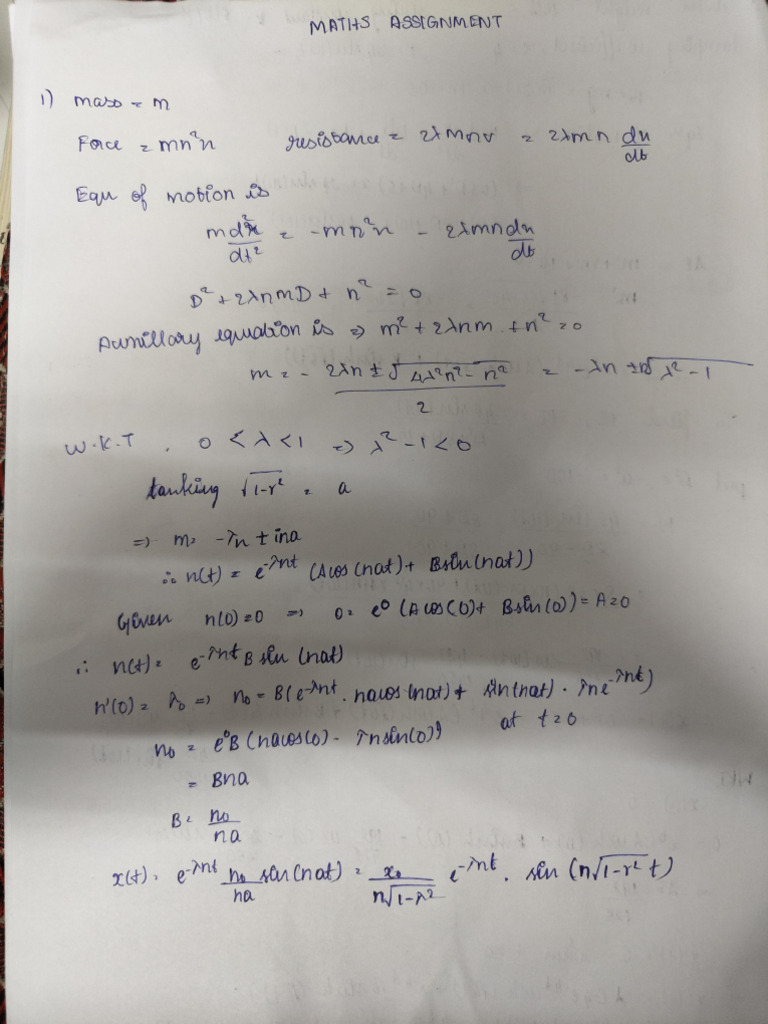 MATHS ASSIGNMENT
1) mass = m
Force = mn²n resistance = 2λmnv = 2λmn dn/dt
Equ of motion is
md²x/dt² = -mn²n - 2λmn dn/dt
D² + 2λnmD + n² = 0
Aunillary equation is ⇒ m² + 2λnm + n² = 0
m = - 2λn ± √4λ²n² - n² / 2 = -λn ± n√λ² - 1
W.K.T , 0 < λ < 1 ⇒ λ² - 1 < 0
tanking √1-r² = a
⇒ m = -λn ± ina
∴ n(t) = e^-λnt (Acos(nat) + Bsin(nat))
Given n(0) = 0 ⇒ 0 = e⁰ (Acos(0) + Bsin(0)) = A = 0
∴ n(t) = e^-λnt B sin (nat)
n'(0) = ⇒ n₀ = B(e^-λnt . nacos(nat) + sin(nat) . λne^-λnt)
n₀ = e⁰B (nacos(0) - λnsin(0)) at t = 0
= Bna
B = n₀/na
x(t) = e^-λnt n₀/na sin(nat) = x₀/n√1-λ² e^-λnt . sin (n√1-r² t)